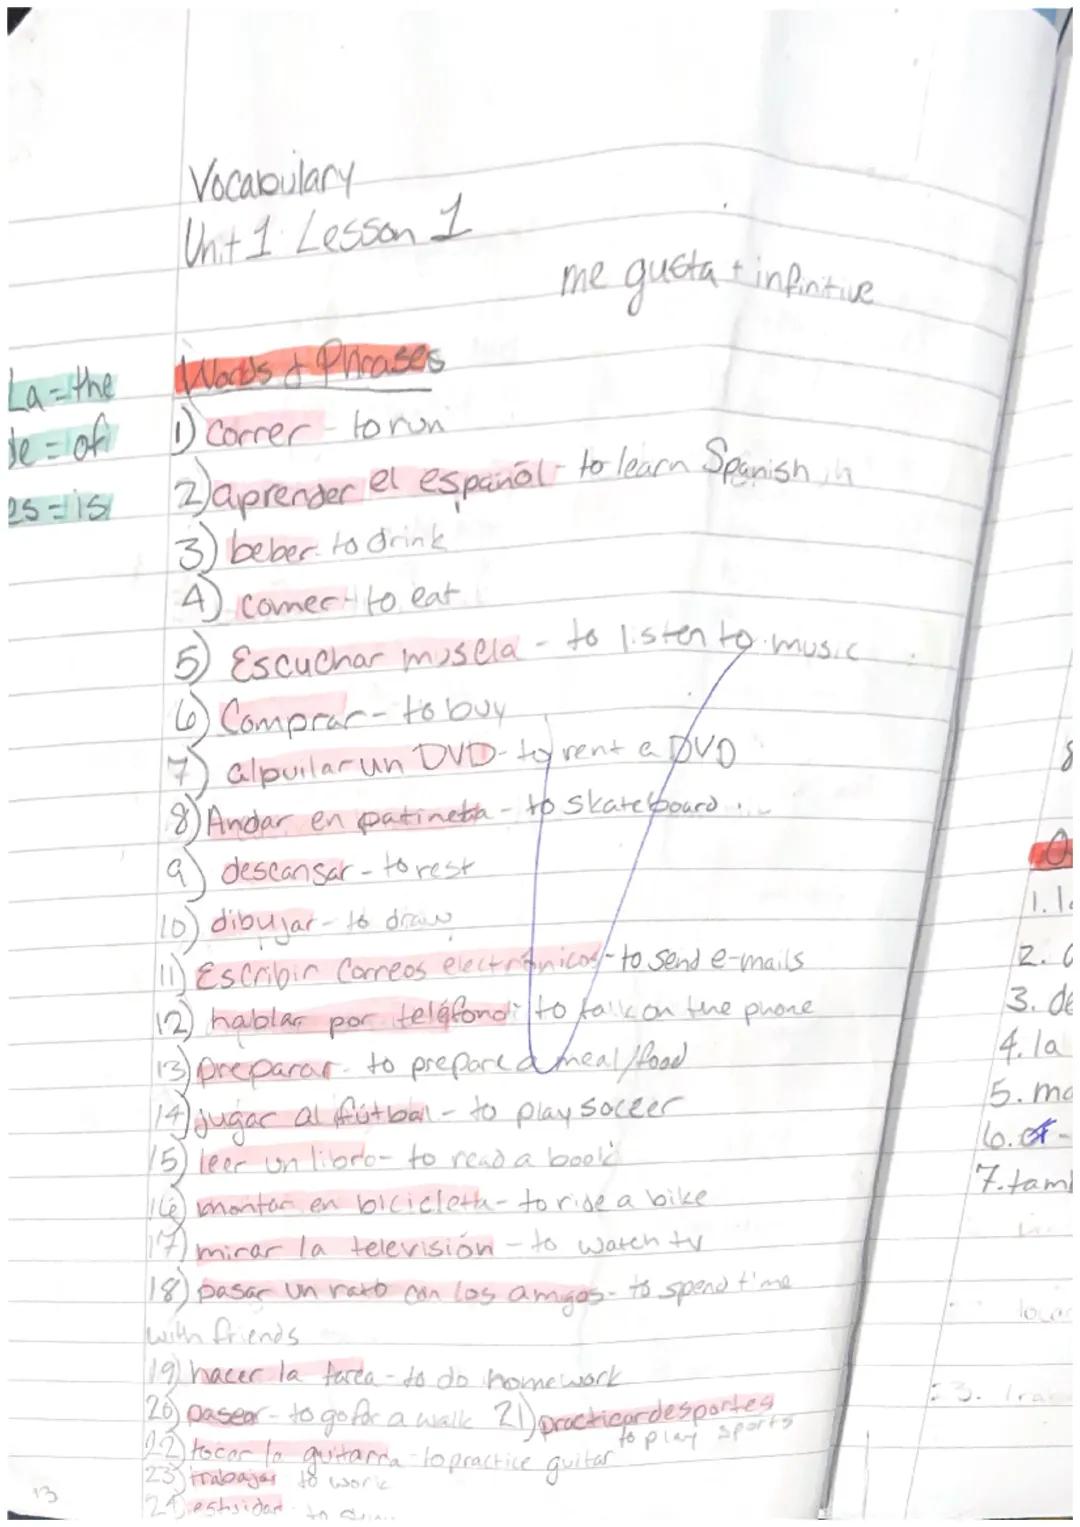 Vocabulary
Unit 1 Lesson 1
me gusta + infinitive
La = the
de = of
es = is
Words & Phrases
1) correr - to run
2) aprender el español - to learn Spanish
3) beber - to drink
4) comer - to eat
5) Escuchar musela - to listen to music
6) Comprar - to buy
7) alpuilar un DVD - to rent a DVD
8) Andar en patineta - to skateboard
9) descansar - to rest
10) dibujar - to draw
11) Escribir Correos electrónicos - to send e-mails
12) hablar por teléfono - to talk on the phone
13) preparar - to prepare a meal/food
14) jugar al fútbal - to play soccer
15) leer un libro - to read a book
16) montar en bicicletta - to ride a bike
17) mirar la televisión - to watch tv
18) pasar un rato con los amigos - to spend time
with friends
19) hacer la tarea - to do homework
20) pasear - to go for a walk 21) practicar desportes
to play sports
22) tocar la guitarra - to practice guitar
23) trabajar to work
24)
13
1. la
2.
3. de
4. la
5. ma
6.
7. tam